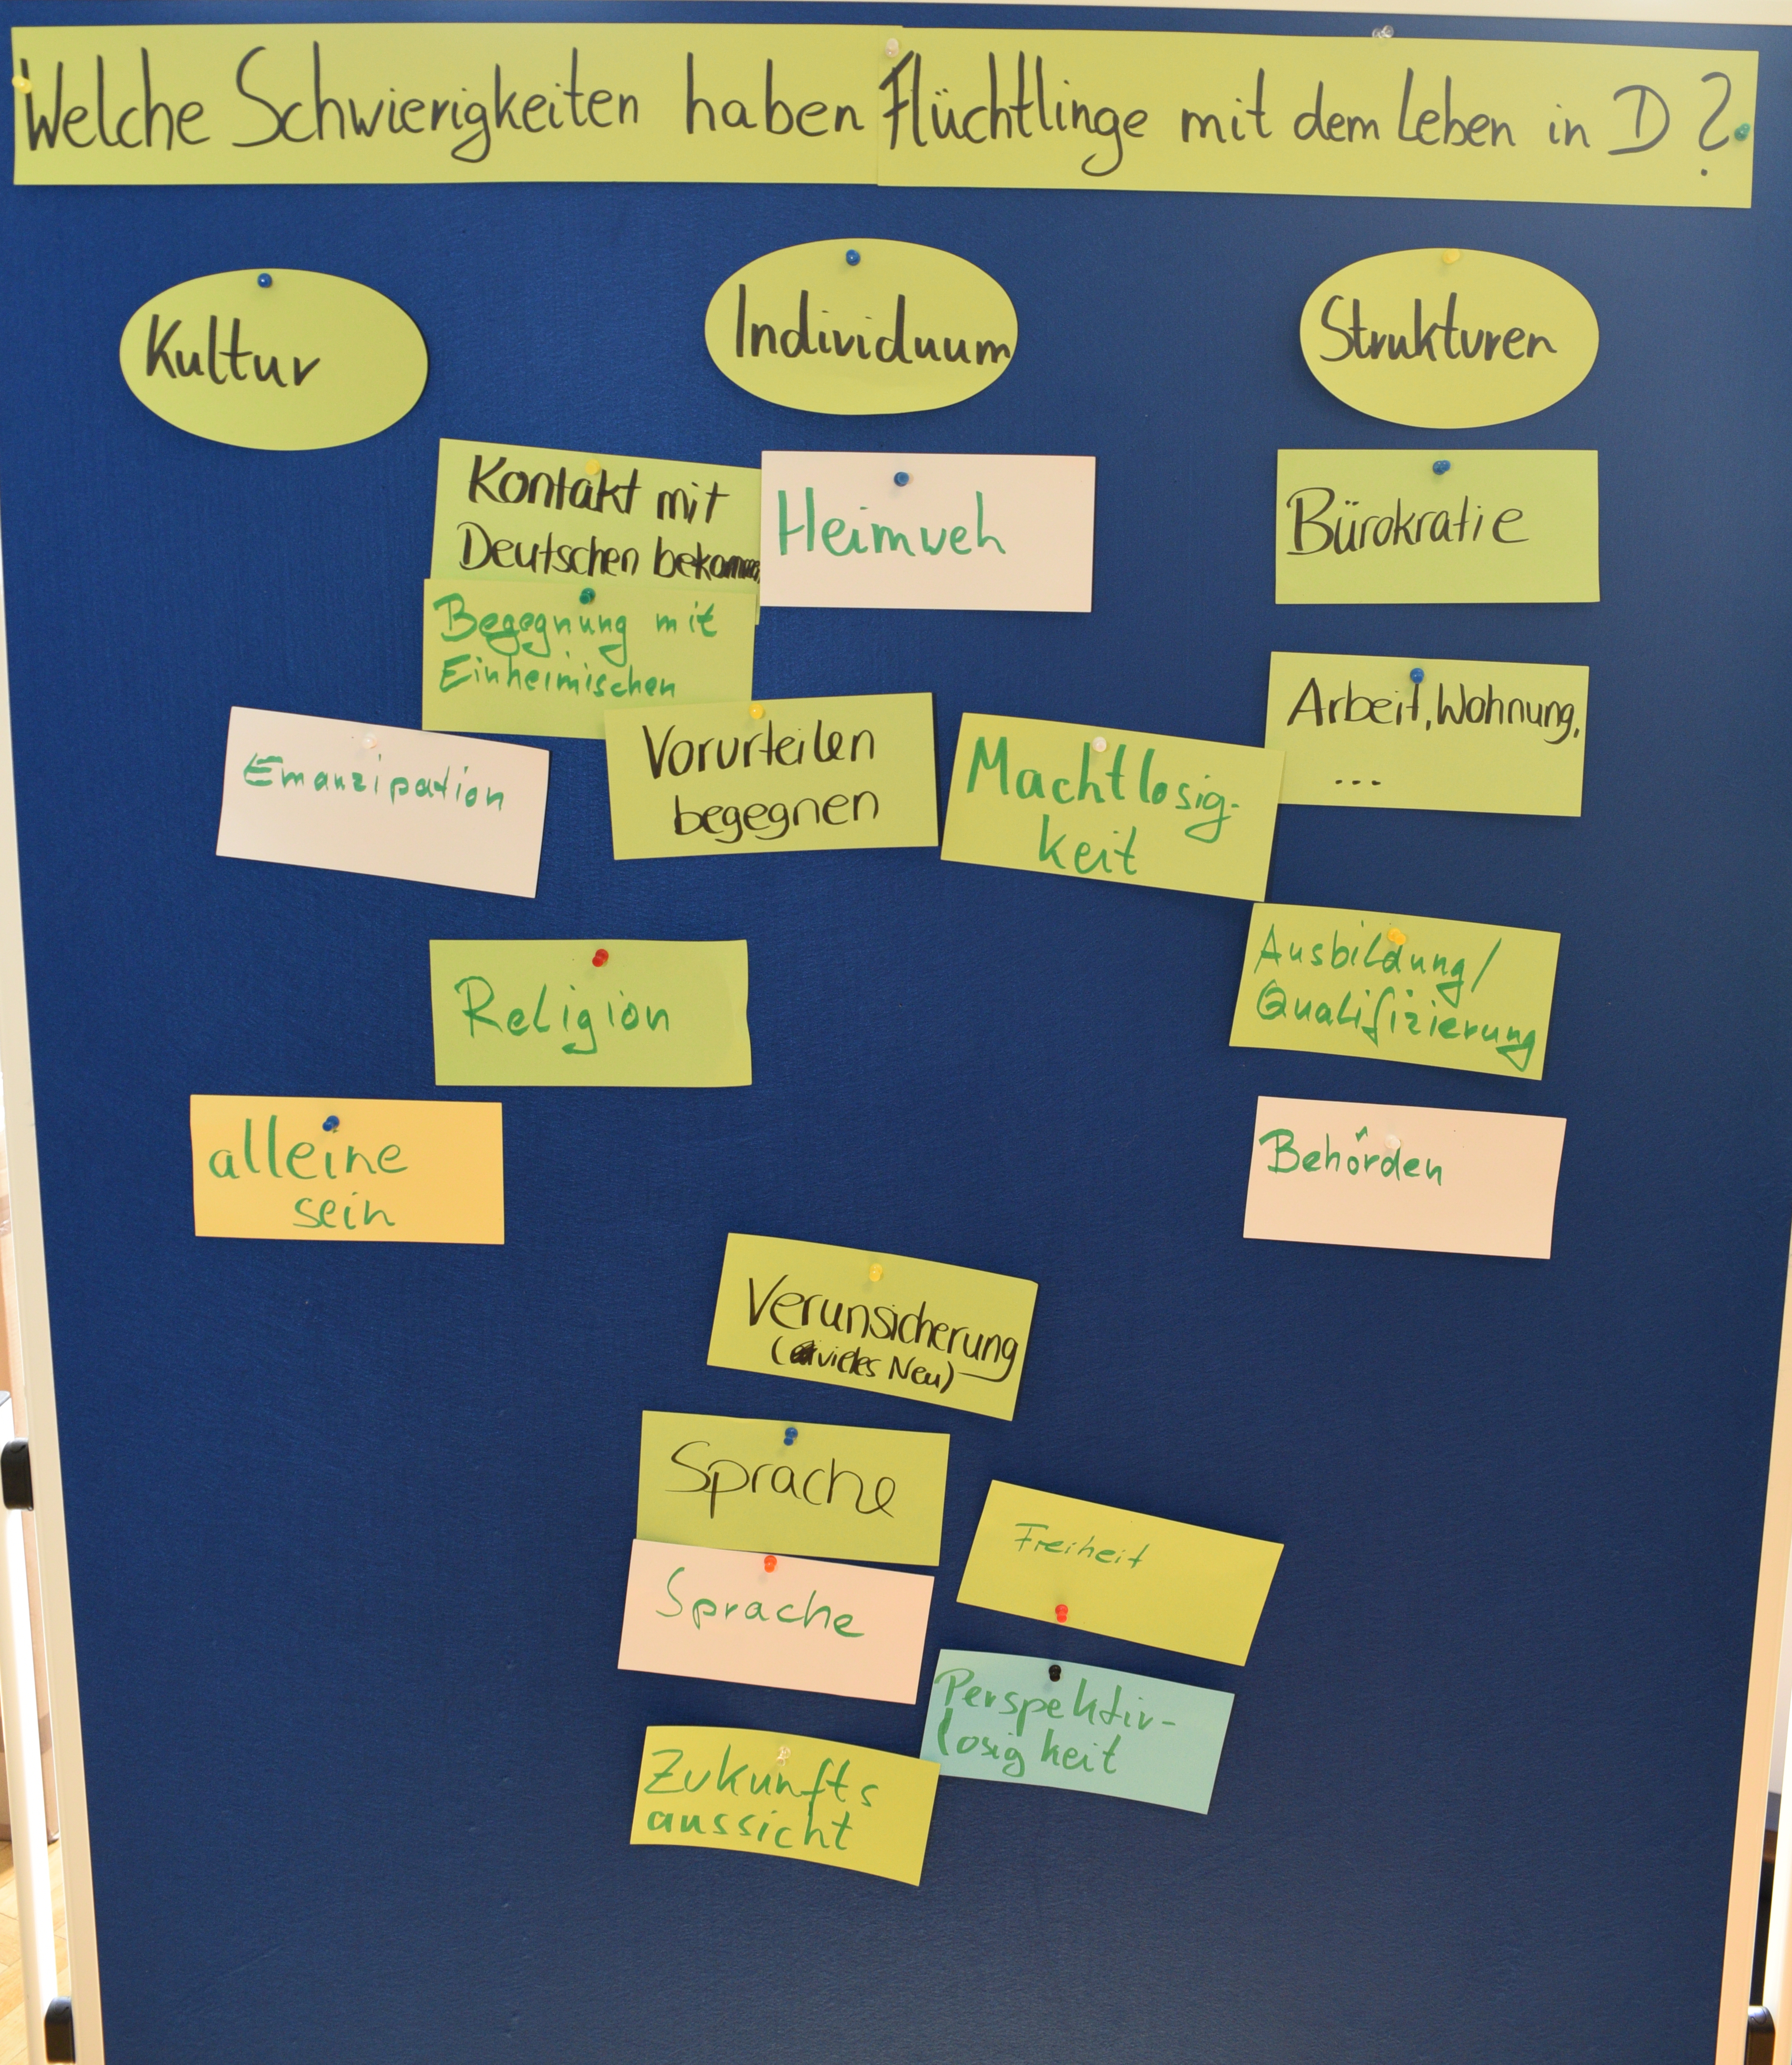 Welche Schwierigkeiten haben Flüchtlinge mit dem Leben in D?
Kultur
Individuum
Strukturen
Kontakt mit
Deutschen bekommen
Heimweh
Bürokratie
Begegnung mit
Einheimischen
Arbeit, Wohnung,
...
Emanzipation
Vorurteilen
begegnen
Machtlosig-
keit
Ausbildung/
Qualifizierung
Religion
alleine
sein
Behörden
Verunsicherung
(vieles Neu)
Sprache
Freiheit
Sprache
Perspektiv-
losigkeit
Zukunfts
aussicht